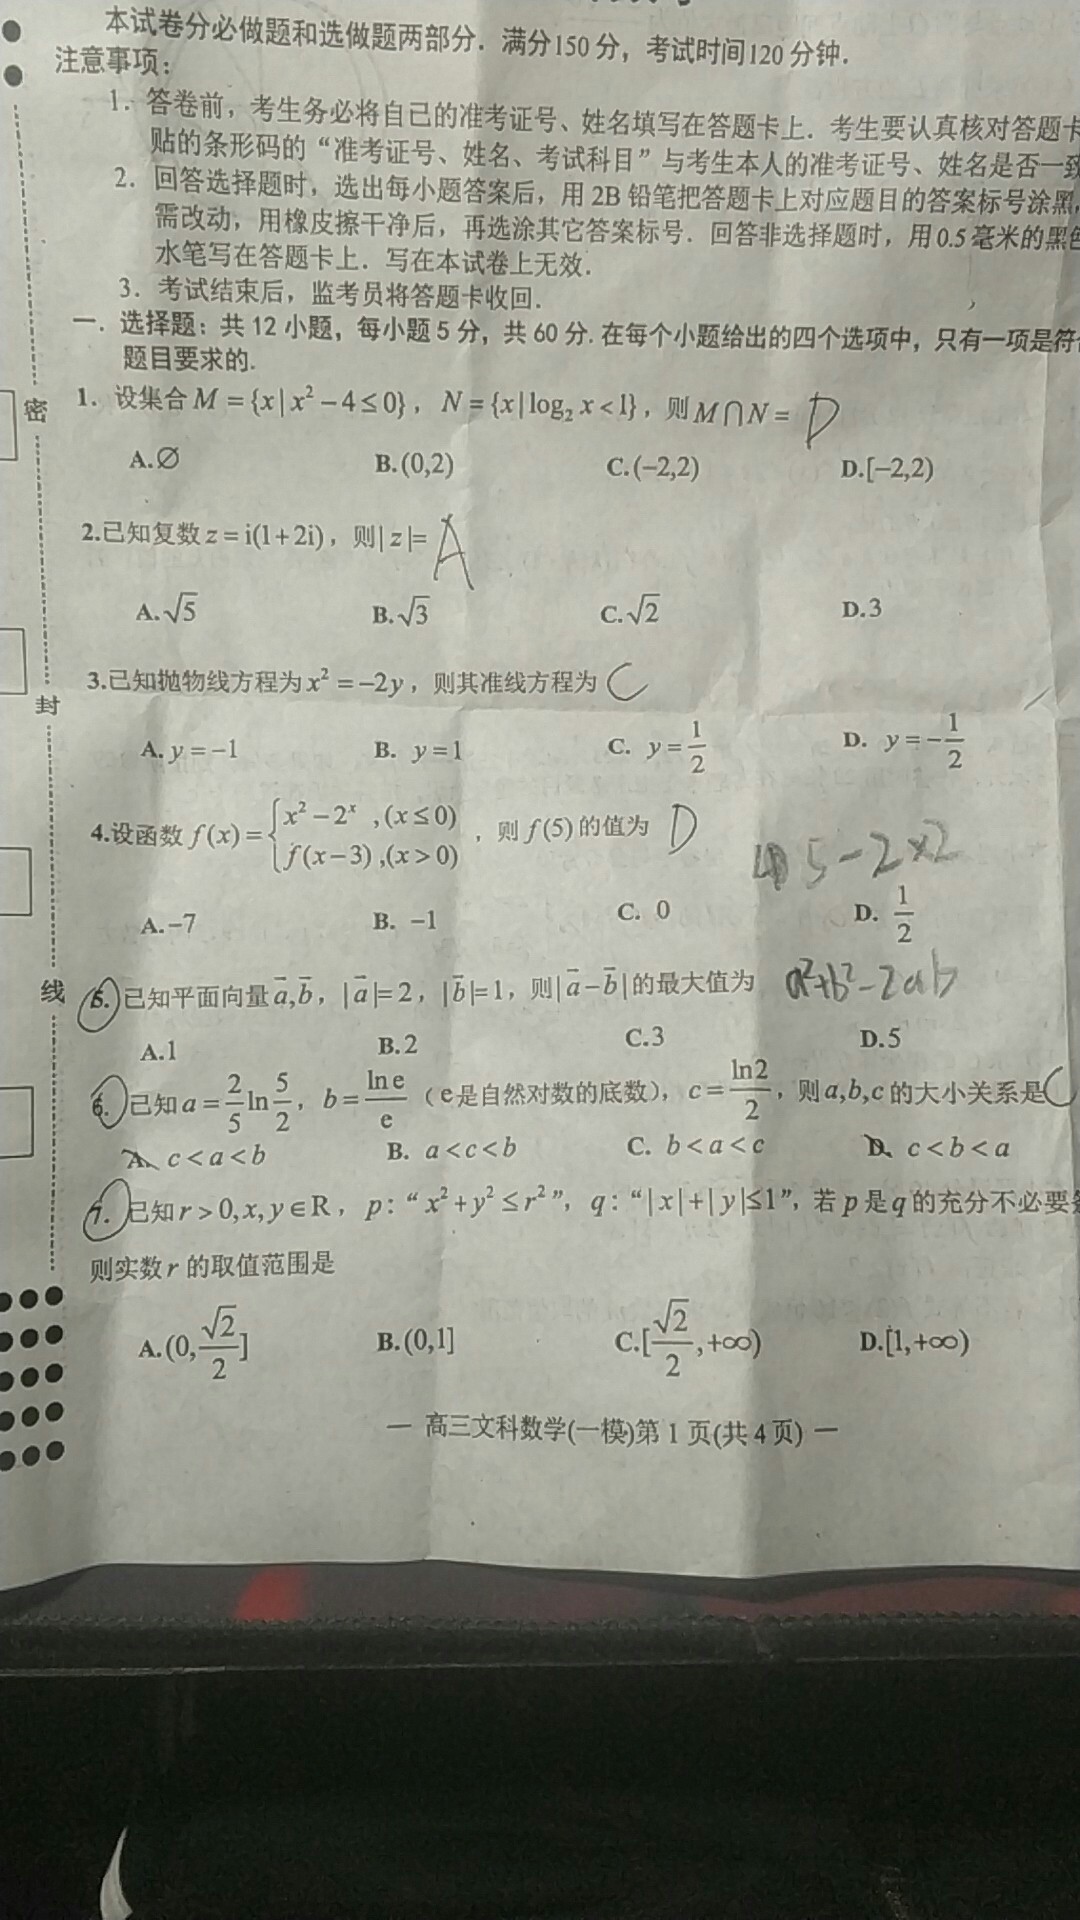 本试卷分必做题和选做题两部分．满分150分，考试时间120分钟．
注意事项：
1．答卷前，考生务必将自己的准考证号、姓名填写在答题卡上．考生要认真核对答题卡
贴的条形码的“准考证号、姓名、考试科目”与考生本人的准考证号、姓名是否一致
2．回答选择题时，选出每小题答案后，用2B铅笔把答题卡上对应题目的答案标号涂黑，
需改动，用橡皮擦干净后，再选涂其它答案标号．回答非选择题时，用0.5毫米的黑色
水笔写在答题卡上．写在本试卷上无效．
3．考试结束后，监考员将答题卡收回．
一．选择题：共12小题，每小题5分，共60分.在每个小题给出的四个选项中，只有一项是符合
题目要求的.
密
1．设集合M={x|x²-4≤0}，N={x|log₂x<1}，则M∩N= D
A.∅ B.(0,2) C.(-2,2) D.[-2,2)
2.已知复数z=i(1+2i)，则|z|= A
A.√5 B.√3 C.√2 D.3
3.已知抛物线方程为x²=-2y，则其准线方程为 C
封
A. y=-1 B. y=1 C. y=1/2 D. y=-1/2
4.设函数f(x)={x²-2ˣ,(x≤0) f(x-3),(x>0)，则f(5)的值为 D
5-2×2
A.-7 B. -1 C. 0 D. 1/2
线
5.已知平面向量a,b，|a|=2，|b|=1，则|a-b|的最大值为 a²+b²-2ab
A.1 B.2 C.3 D.5
6.已知a=2/5 ln 5/2，b=ln e/e（e是自然对数的底数），c=ln2/2，则a,b,c的大小关系是 C
A. c<a<b B. a<c<b C. b<a<c D. c<b<a
7.已知r>0,x,y∈R，p:“x²+y²≤r²”，q:“|x|+|y|≤1”，若p是q的充分不必要条
则实数r的取值范围是
A.(0,√2/2] B.(0,1] C.[√2/2,+∞) D.[1,+∞)
— 高三文科数学(一模)第1页(共4页) —